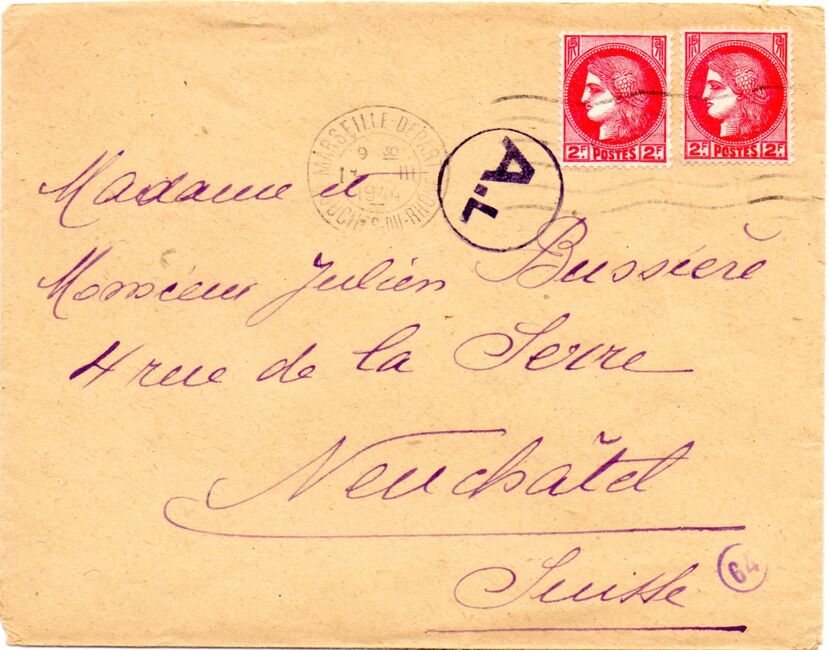 2F POSTES 2F
2F POSTES 2F
MARSEILLE-DEPART
9 30
III
1944
BOUCHES-DU-RHONE
A.L
Madame et
Monsieur Julien Bussière
4 rue de la Serre
Neuchâtel
Suisse
64